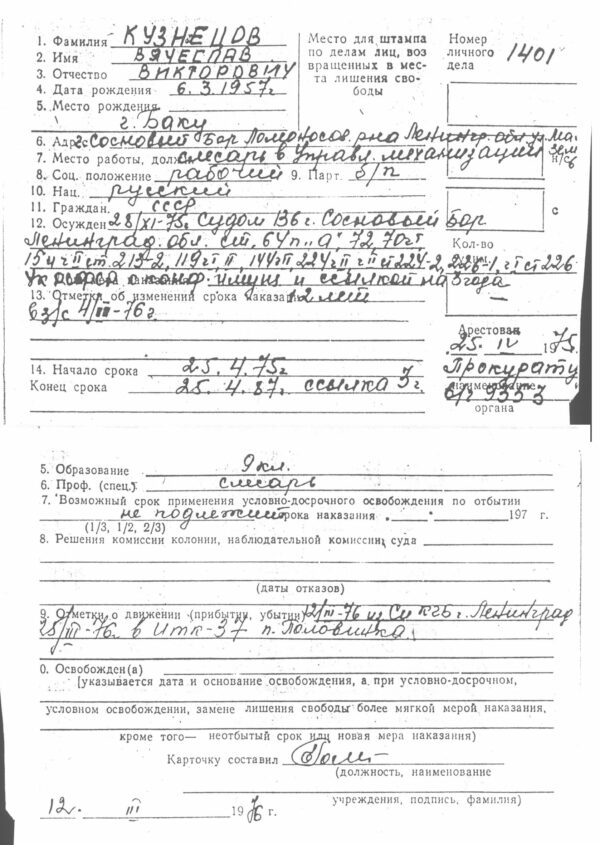 1. Фамилия КУЗНЕЦОВ
2. Имя ВЯЧЕСЛАВ
3. Отчество ВИКТОРОВИЧ
4. Дата рождения 6.3.1957г.
5. Место рождения
г. Баку
Место для штампа
по делам лиц, воз
вращенных в мес-
та лишения сво-
боды
Номер
личного
дела
1401
6. Адрес г. Сосновый Бор Ломоносов. р-на Ленингр. обл. ул.
7. Место работы, долж слесарь в Управл. механизации
8. Соц. положение рабочий 9. Парт. б/п
10. Нац. русский
11. Граждан. СССР
12. Осужден 28/XI-75г. Судом г. Сосновый Бор
Ленинград. обл. ст. 64 п. „а", 72, 70 ч I
15 ч II ст. 213-2, 119 ч I, 144 ч II, 224 ч II ст 224-2, 226-1, ч I ст 226
УК РСФСР с конф. имущ и ссылкой на 3 года
13. Отметки об изменении срока наказан. 12 лет
в з/с 4/III-76г.
н/с б
с
Кол-во
—
Арестован
25. IV 1975.
Прокурату
наименование
органа
14. Начало срока 25.4.75г
Конец срока 25.4.87г. ссылка 3г.
5. Образование 9 кл.
6. Проф. (спец.) слесарь
7. Возможный срок применения условно-досрочного освобождения по отбытии
не подлежит срока наказания . " 197 г.
(1/3, 1/2, 2/3)
8. Решения комиссии колонии, наблюдательной комиссии, суда
(даты отказов)
9. Отметки о движении (прибытии, убытии) 12/III-76 из Си КГБ г. Ленинград
28/III-76г. в ИТК-37 п. Половинка.
0. Освобожден(а)
(указывается дата и основание освобождения, а при условно-досрочном,
условном освобождении, замене лишения свободы более мягкой мерой наказания,
кроме того— неотбытый срок или новая мера наказания)
Карточку составил
(должность, наименование
учреждения, подпись, фамилия)
12. III 1976 г.